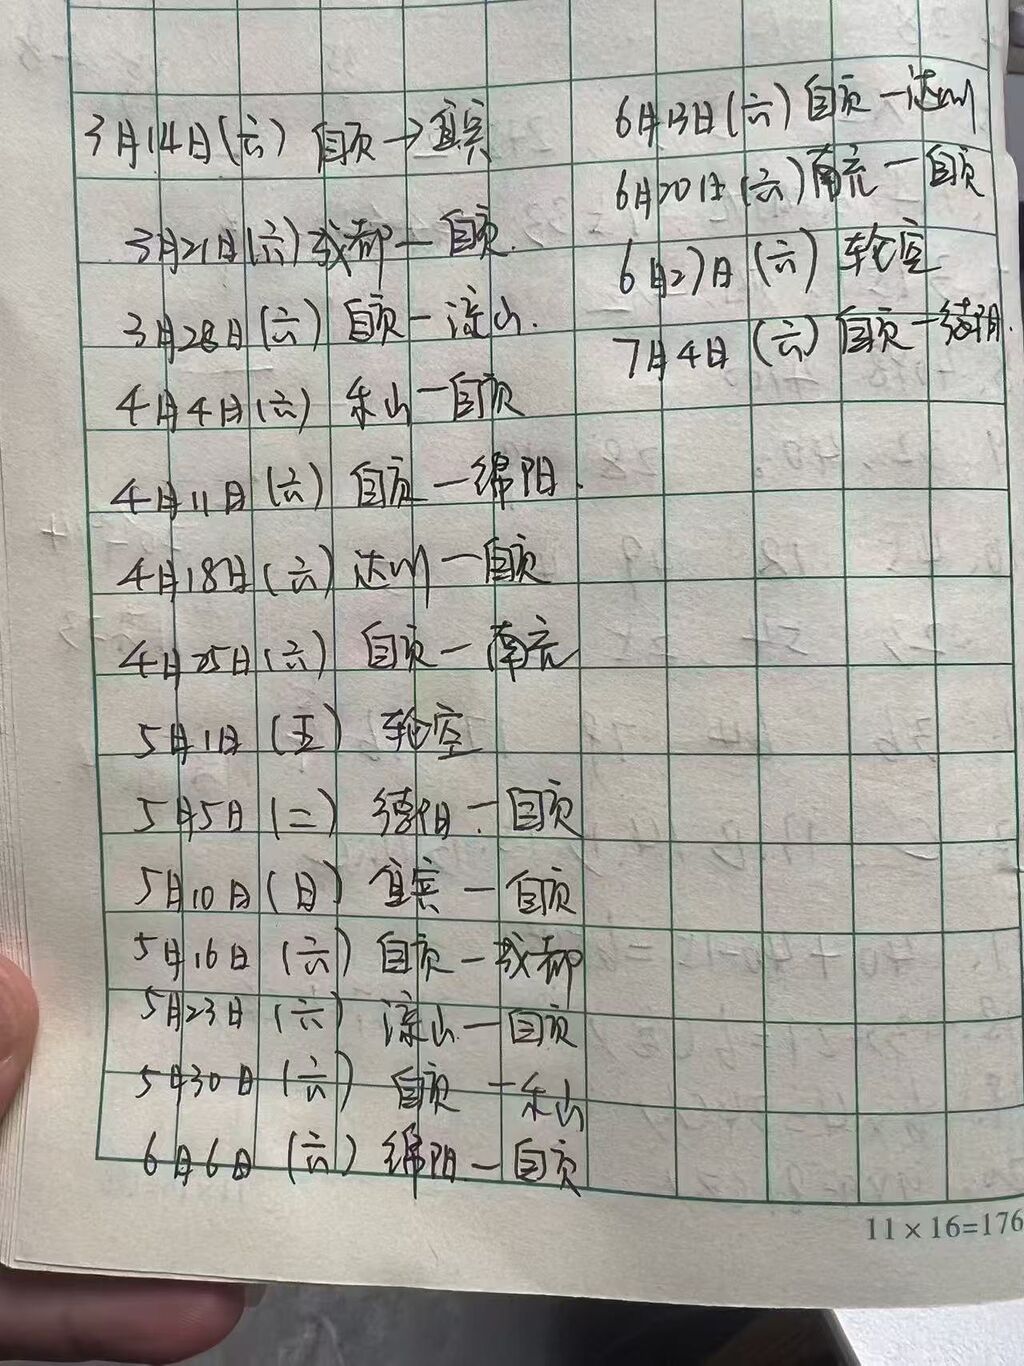 3月14日(六) 自贡→宜宾
3月21日(六) 成都一自贡.
3月28日(六) 自贡一凉山.
4月4日(六) 乐山一自贡
4月11日(六) 自贡一绵阳.
4月18日(六) 达州一自贡
4月25日(六) 自贡一南充
5月1日(五) 轮空
5月5日(二) 德阳一自贡
5月10日(日) 宜宾一自贡
5月16日(六) 自贡一成都
5月23日(六) 凉山一自贡
5月30日(六) 自贡一乐山
6月6日(六) 绵阳一自贡
6月13日(六) 自贡一达州
6月20日(六) 南充一自贡
6月27日(六) 轮空
7月4日(六) 自贡一德阳.
11×16=176